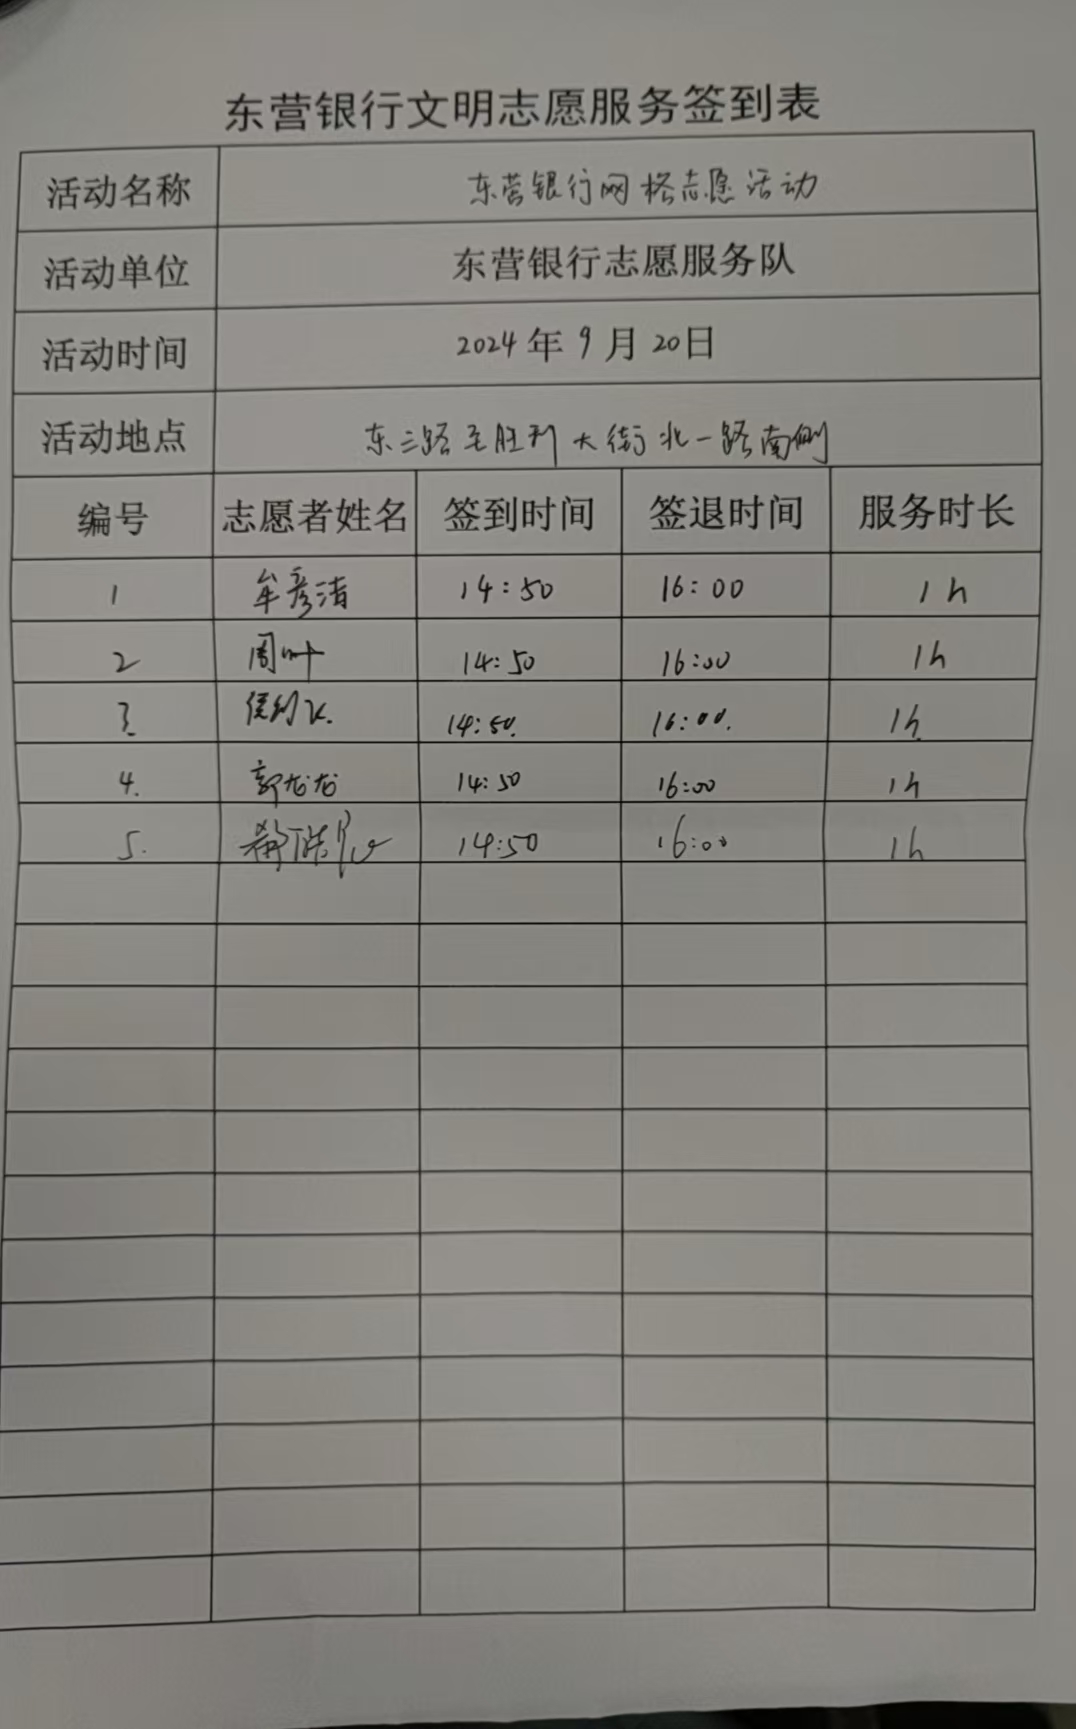 东营银行文明志愿服务签到表
活动名称 东营银行网格志愿活动
活动单位 东营银行志愿服务队
活动时间 2024年9月20日
活动地点 东三路至胜利大街北一路南侧
编号 志愿者姓名 签到时间 签退时间 服务时长
1 牟彦清 14:50 16:00 1h
2 周叶 14:50 16:00 1h
3. 14:50. 16:00. 1h
4. 郭龙龙 14:50 16:00 1h
5. 14:50 16:00 1h